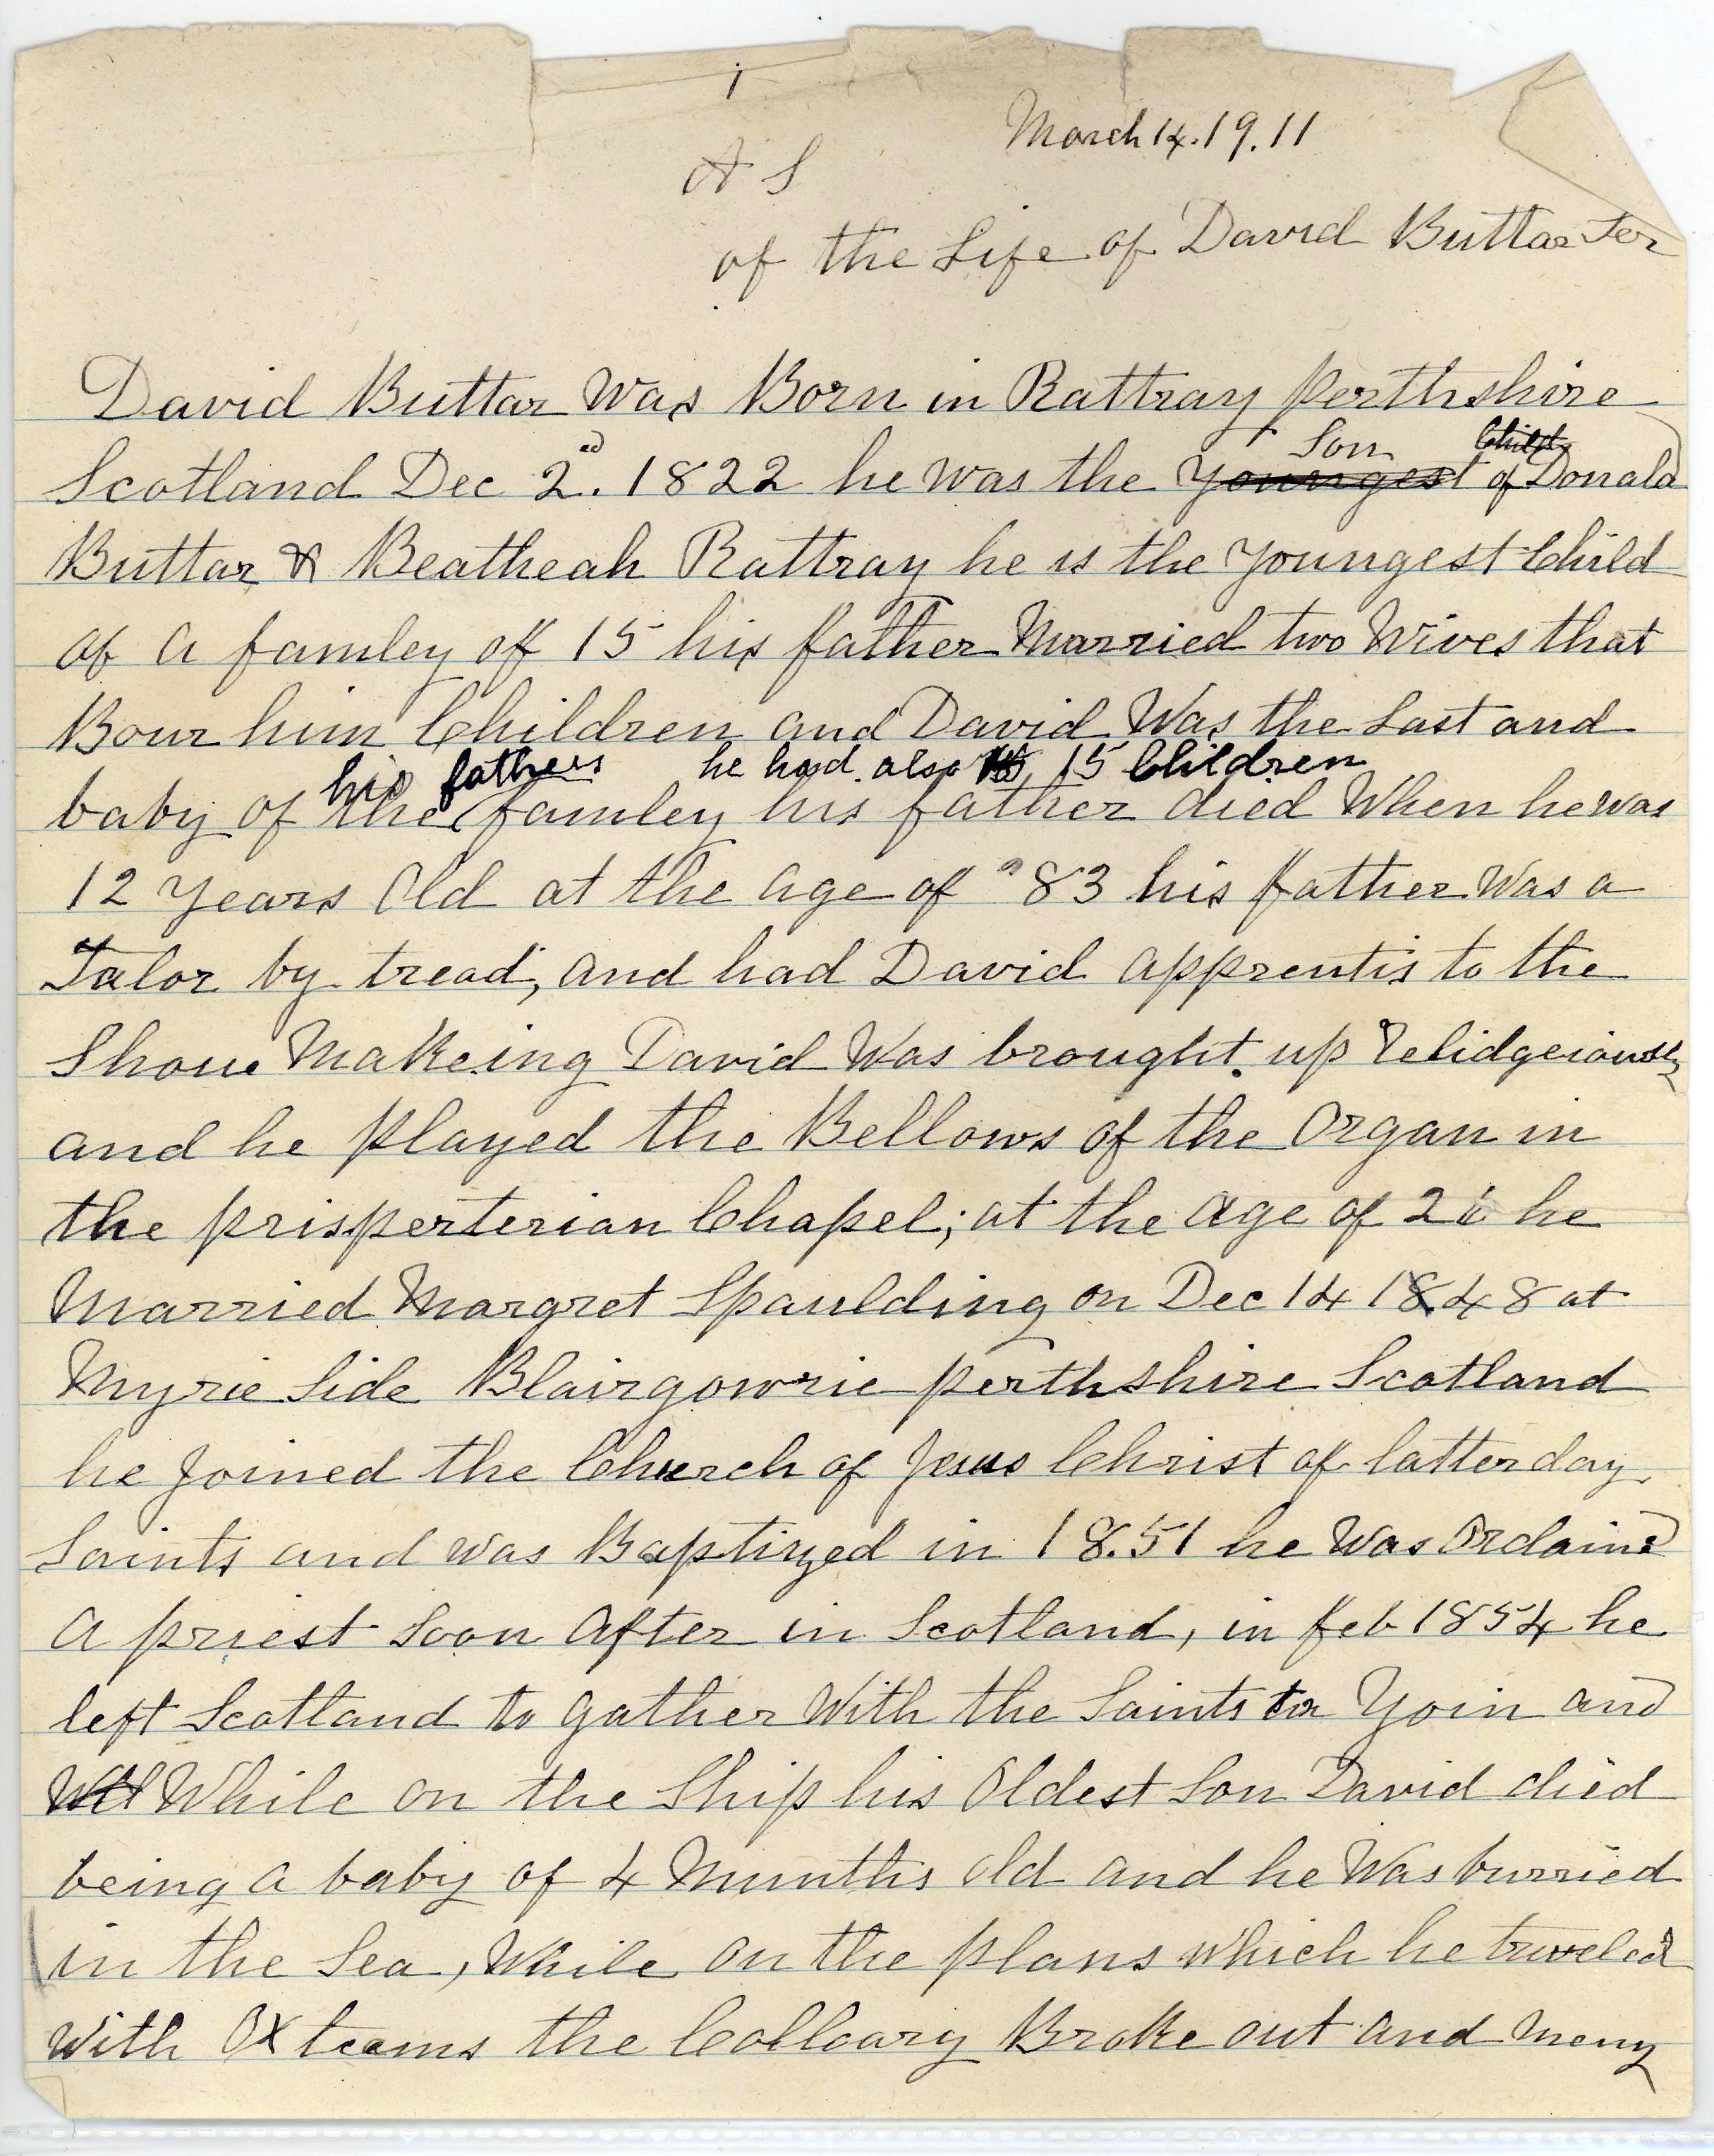 1
March 14. 19. 11
A S
of the Life of David Buttar Ser
David Buttar Was Born in Rattray perthshire
Son Child
Scotland Dec 2nd. 1822 he was the Youngest of Donald
Buttar & Beatheah Rattray he is the Youngest Child
of a famley off 15 his father Married two Wives that
Bour him Children and David Was the Last and
his fathers he had also 15 15 Children
baby of the famley his father died When he was
12 Years Old at the age of 83 his father Was a
Talor by tread, and had David apprentis to the
Shoue Makeing David Was brought up Relidgeiously
and he played the Bellows of the Organ in
the prisperterian Chapel; at the age of 26 he
Married Margret Spaulding on Dec 14 1848 at
Myrie Side Blairgowrie perthshire Scotland
he Joined the Church of Jesus Christ of latter day
Saints and was Baptized in 18.51 he Was Ordaind
a priest Soon After in Scotland, in feb 1854 he
left Scotland to gather With the Saints to Yoin and
While on the Ship his Oldest Son David died
being a baby of 4 Munths old and he Was burried
in the Sea, While on the plans which he traveled
With Ox teams the Colloary Broke out and meny